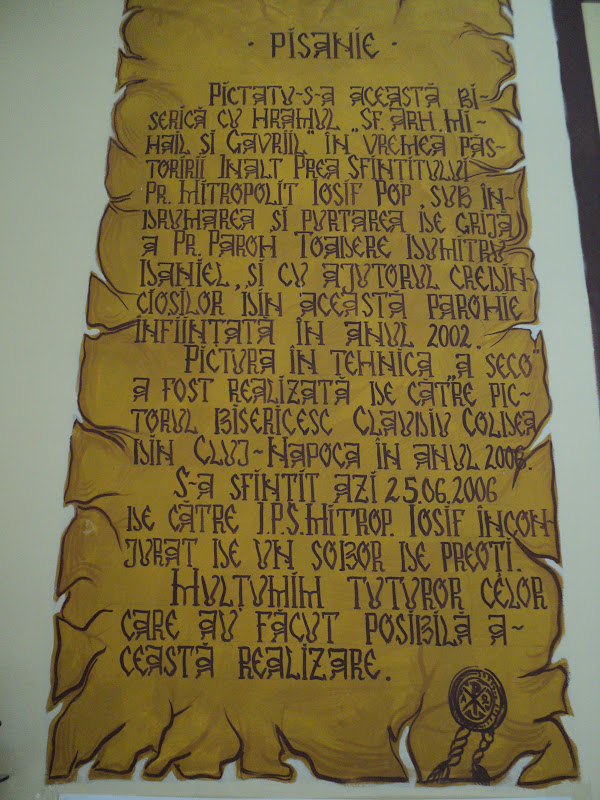 · PISANIE ·
PICTATU-S-A ACEASTĂ BI-
SERICĂ CU HRAMUL „SF. ARH. MI-
HAIL SI GAVRIIL" ÎN VREMEA PĂS-
TORIRII INALT PREA SFINTITULUI
PR. MITROPOLIT IOSIF POP, SUB ÎN-
DRUMAREA SI PURTAREA DE GRIJĂ
A PR. PAROH TOADERE DUMITRU
DANIEL, SI CU AJUTORUL CREDIN-
CIOSILOR DIN ACEASTĂ PAROHIE
INFIINTATĂ ÎN ANUL 2002.
PICTURA ÎN TEHNICA „A SECO"
A FOST REALIZATĂ DE CĂTRE PIC-
TORUL BISERICESC CLAUDIU COLDEA
DIN CLUJ-NAPOCA ÎN ANUL 2006.
S-A SFINTIT AZI 25.06.2006
DE CĂTRE I.P.S. MITROP. IOSIF ÎNCON-
JURAT DE UN SOBOR DE PREOTI.
MULTUMIM TUTUROR CELOR
CARE AU FĂCUT POSIBILĂ A-
CEASTĂ REALIZARE.